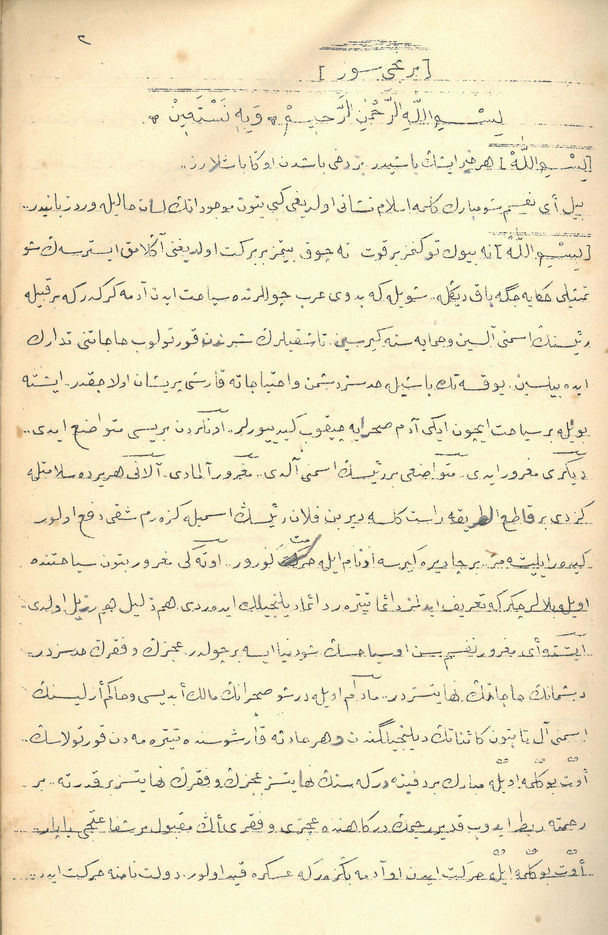 ٢
[برنجی سوز]
بِسْــمِ اللّٰهِ الرَّحْمٰنِ الرَّحِيــمِ وَبِهِ نَسْتَعِينُ
[بِسْــمِ اللّٰهْ] هر خیر ایشڭ باشیدر. بز دخی باشدن اوڭا باشلارز..
بیل أی نفسم شو مبارك كلمه اسلام نشانی اولدیغی كبی بتون موجوداتڭ لسان حالیله ورد زبانیدر..
[بِسْــمِ اللّٰهْ] نه بیوك توكنمز بر قوت نه چوق بیتمز بر بركت اولدیغنی آڭلامق ایسترسهڭ شو
تمثیلی حكایه جگه باق دیڭله.. شویله كه بدوی عرب چوللرنده سیاحت ایدن آدمه گركدر كه بر قبیله
رئیسنڭ اسمنی آلسین و حمایه سنه گیرسین. تا شقیلرڭ شرندن قورتولوب حاجاتنی تدارك
ایده بیلسین. یوقسه تك باشیله حدسز دشمن و احتیاجاته قارشی پریشان اولاجقدر.. ایشته
بویله بر سیاحت ایچون ایكی آدم صحرایه چیقوب گیدییورلر.. اونلردن بریسی متواضع ایدی..
دیگری مغرور ایدی.. متواضعی بر رئیسڭ اسمنی آلدی.. مغرور آلمادی. آلانی هر یرده سلامتله
گزدی بر قاطع الطریقه راست گلسه دیر بن فلان رئیسڭ اسمیله گزه رم شقی دفع اولور
ایلیشه مز.. بر چادیره گیرسه او نام ایله حرمت گورور.. اوته كی مغرور بتون سیاحتنده
اویله بلالر چكر كه تعریف ایدلمز دائما تیتره ر دائما دیلنجیلك ایده ردی. هم ذلیل هم رذیل اولدی..
ایشته أی مغرور نفسم سن او سیاحسڭ شو دنیا ایسه بر چولدر. عجزڭ و فقرڭ حدسزدر..
دشمانڭ حاجاتڭ نهایتسزدر.. مادام اویله در شو صحرانڭ مالك أبدیسی و حاكم أزلیسنڭ
اسمنی آل تا بتون كائناتڭ دیلنجیلگندن و هر حادثه قارشوسنده تیتره مه دن قورتولاسڭ..
أوت بو كلمه اویله مبارك بر دفینه در كه سنڭ نهایتسز عجزڭ و فقرڭ نهایتسز بر قدرته.. بر
رحمته ربط ایدوب قدیر رحیمڭ درگاهنده عجزی و فقری أڭ مقبول بر شفاعتجی یاپار..
أوت بو كلمه ایله حركت ایدن او آدمه بڭزر كه عسكره قید اولور. دولت نامنه حركت ایدر..